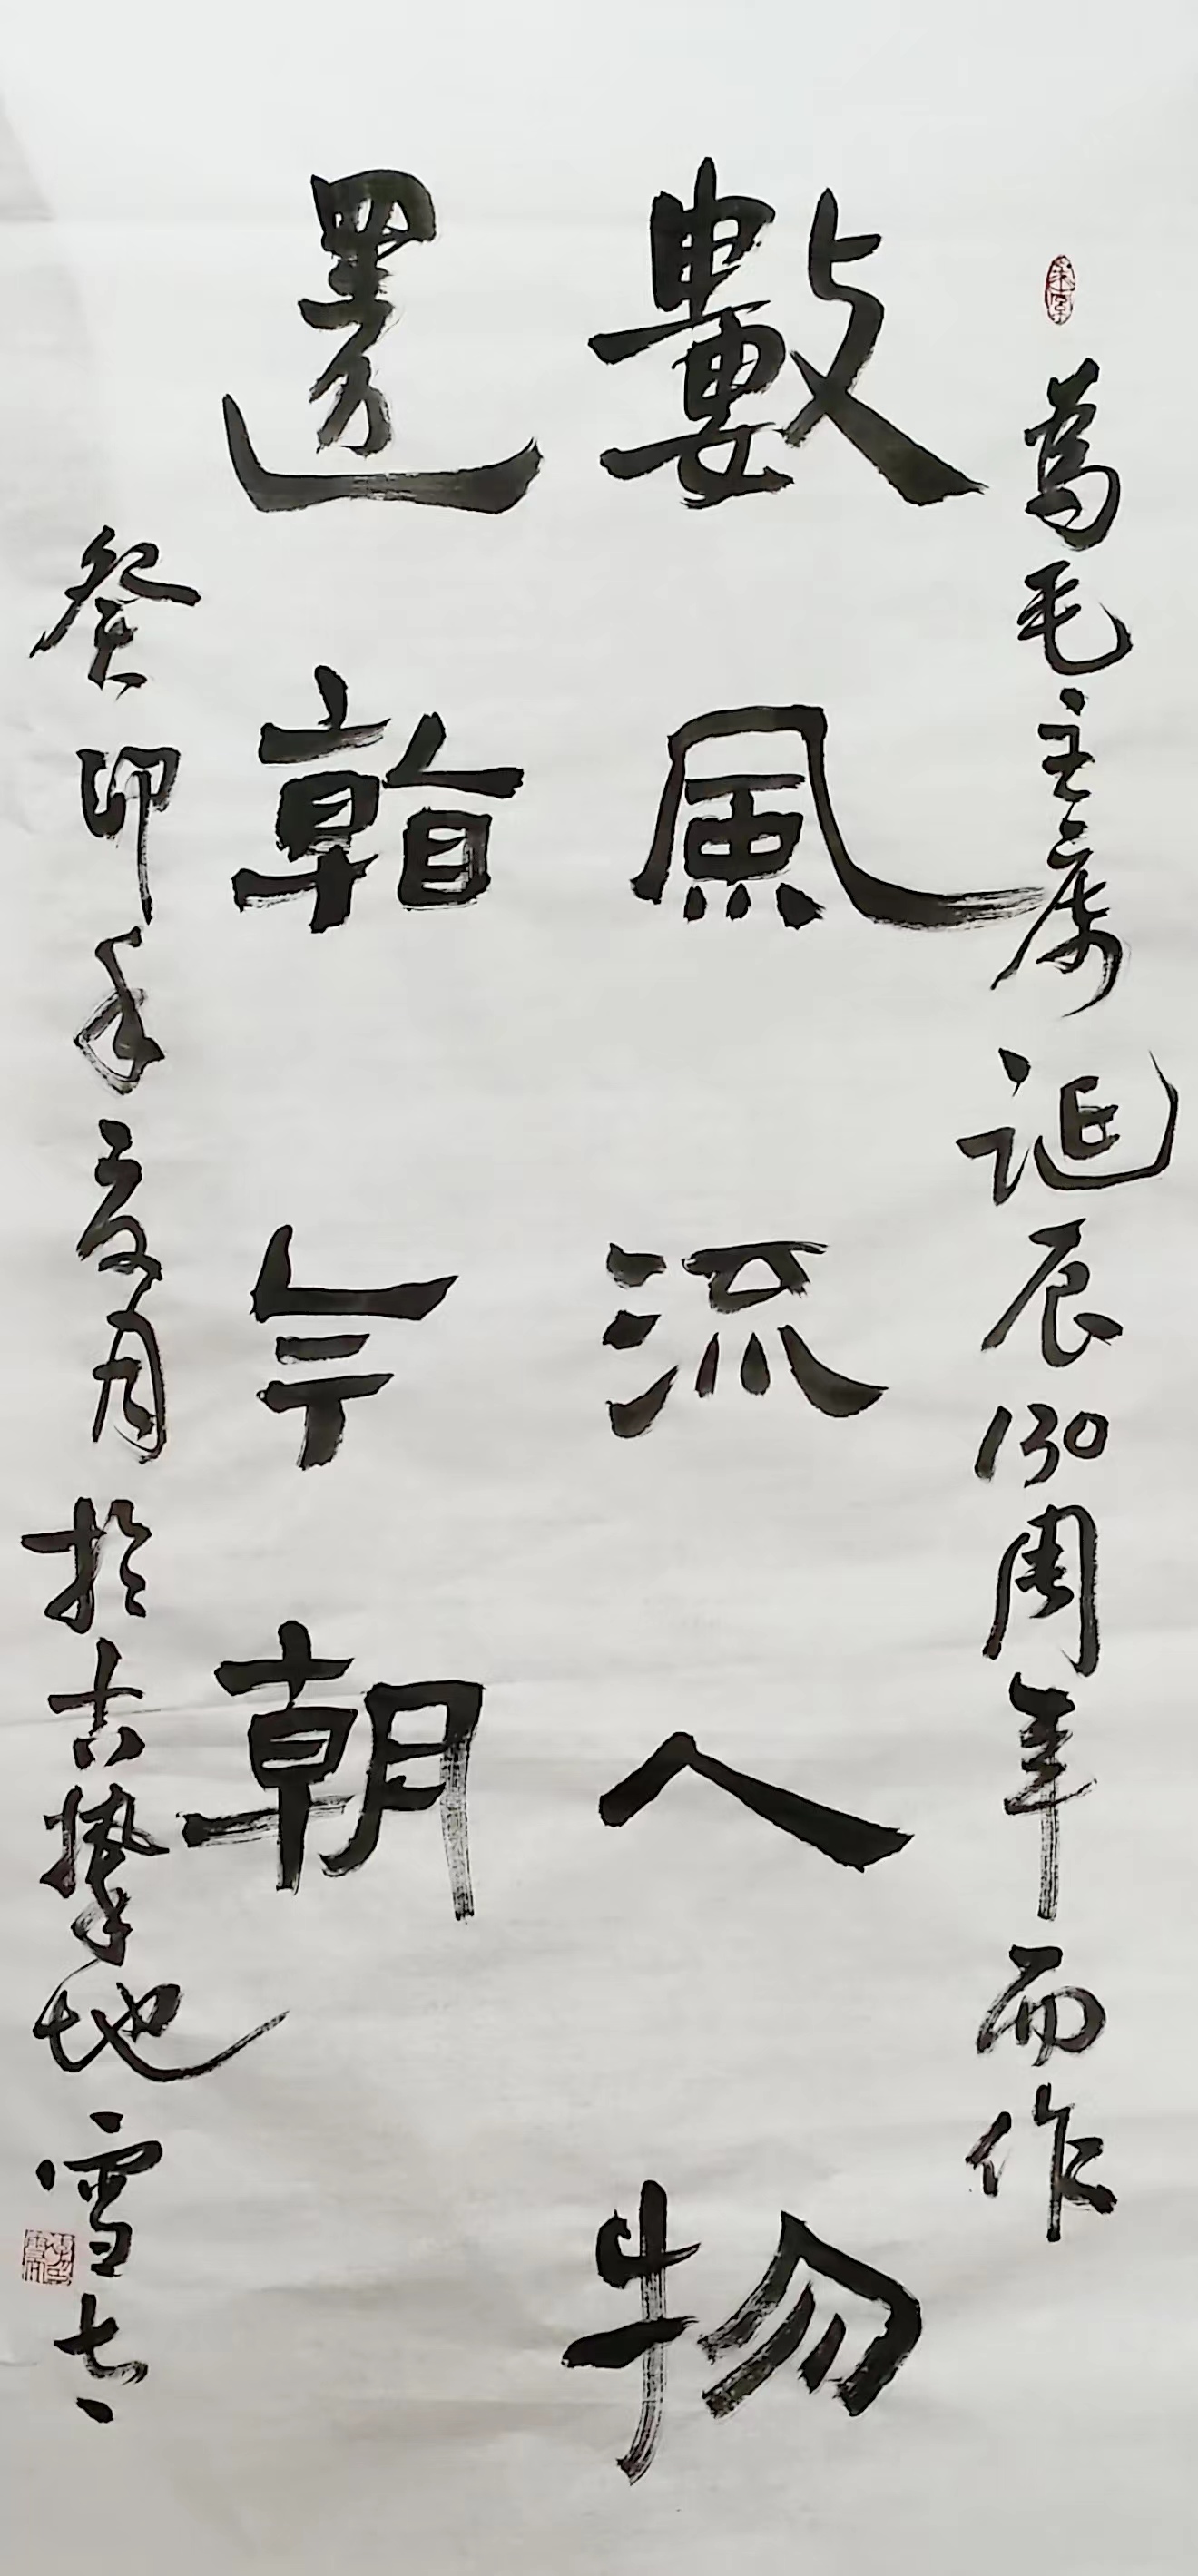 為毛主席誕辰130周年而作
數風流人物
還看今朝
癸卯年夏月於古摯地雪